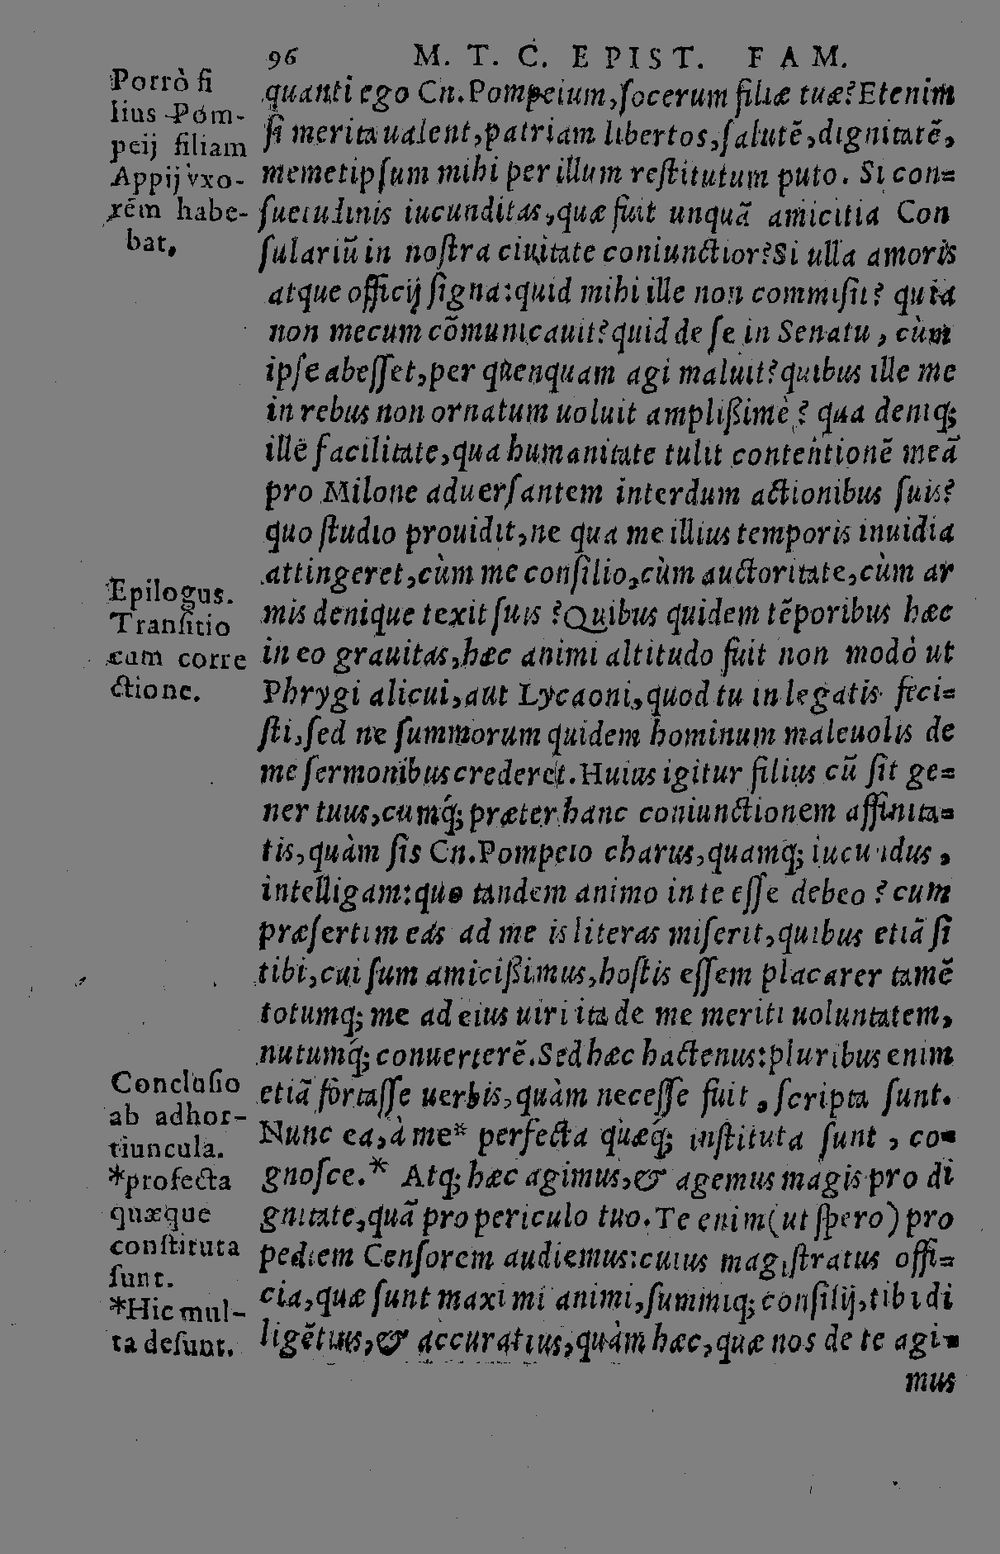 96 M. T. C. EPIST. FAM.
Porrò fi
lius Pom-
peij filiam
Appij vxo-
rēm habe-
bat.
quanti ego Cn.Pompeium,ſocerum filiæ tuæ?Etenim
ſi merita ualent,patriam libertos,ſalutē,dignitatē,
memetipſum mihi per illum reſtitutum puto. Si con=
ſuetudinis iucunditas,quæ fuit unquā amicitia Con
ſulariū in noſtra ciuitate coniunctior?Si ulla amoris
atque officij ſigna:quid mihi ille non commiſit? quid
non mecum cōmunicauit?quid de ſe in Senatu, cùm
ipſe abeſſet,per quenquam agi maluit?quibus ille me
in rebus non ornatum uoluit amplißimè? qua deniq;
ille facilitate,qua humanitate tulit contentionē meā
pro Milone aduerſantem interdum actionibus ſuis?
quo ſtudio prouidit,ne qua me illius temporis inuidia
attingeret,cùm me conſilio,cùm auctoritate,cùm ar
mis denique texit ſuis?Quibus quidem tēporibus hæc
in eo grauitas,hæc animi altitudo fuit non modò ut
Phrygi alicui,aut Lycaoni,quod tu in legatis feci=
ſti,ſed ne ſummorum quidem hominum maleuolis de
me ſermonibus crederet.Huius igitur filius cū ſit ge=
ner tuus,cumq́; præter hanc coniunctionem affinita=
tis,quàm ſis Cn.Pompeio charus,quamq; iucundus,
intelligam:quo tandem animo in te eſſe debeo?cum
præſertim eas ad me is literas miſerit,quibus etiā ſi
tibi,cui ſum amicißimus,hoſtis eſſem placarer tamē
totumq; me ad eius uiri ita de me meriti uoluntatem,
nutumq́; conuerterē.Sed hæc hactenus:pluribus enim
etiā fortaſſe uerbis,quàm neceſſe fuit, ſcripta ſunt.
Nunc ea,à me* perfecta quæq́; inſtituta ſunt, co=
gnoſce.* Atq; hæc agimus,& agemus magis pro di
gnitate,quā pro periculo tuo.Te enim(ut ſpero)pro
pediem Cenſorem audiemus:cuius magiſtratus offi=
cia,quæ ſunt maximi animi,ſummiq; conſilij,tibi di
ligētius,& accuratius,quàm hæc,quæ nos de te agi=
mus
Epilogus.
Tranſitio
cum corre
ctione.
Concluſio
ab adhor-
tiuncula.
*profecta
quæque
conſtituta
ſunt.
*Hic mul-
ta deſunt.